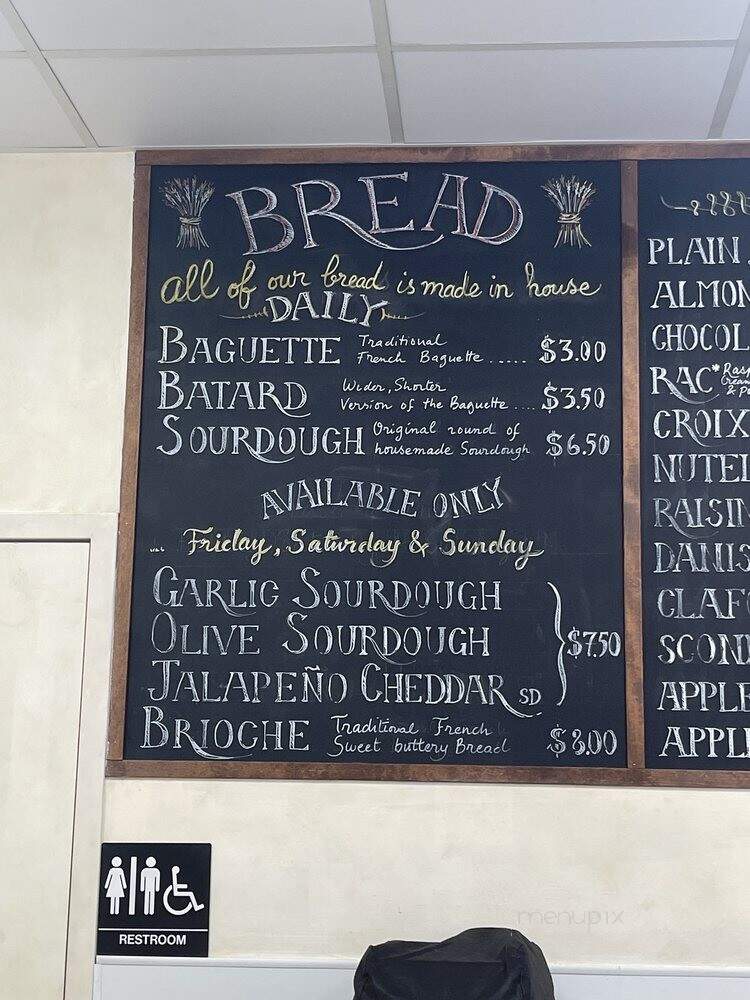 BREAD
all of our bread is made in house
DAILY
BAGUETTE Traditional
French Baguette ..... $3.00
BATARD Wider, Shorter
Version of the Baguette .... $3.50
SOURDOUGH Original round of
housemade Sourdough $6.50
AVAILABLE ONLY
... Friday, Saturday & Sunday
GARLIC SOURDOUGH
OLIVE SOURDOUGH $7.50
JALAPEÑO CHEDDAR SD
BRIOCHE Traditional French
Sweet buttery Bread $8.00
PLAIN
ALMON
CHOCOL
RAC*
CROIX
NUTEL
RAISIN
DANIS
CLAFO
SCON
APPLE
APPL
RESTROOM
menupix